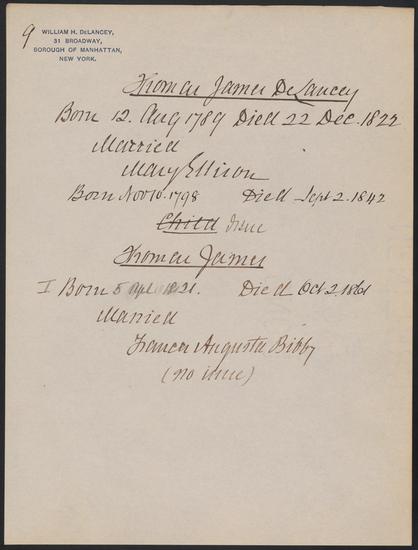 9
WILLIAM H. DELANCEY,
31 BROADWAY,
BOROUGH OF MANHATTAN,
NEW YORK.
Thomas James DeLancey
Born 12. Aug 1789 Died 22 Dec. 1822
Married
Mary Ellison
Born Nov 10. 1798 Died Sept 2. 1842
Child Issue
Thomas James
I Born 5 Apl 1821. Died Oct 2. 1861
Married
Frances Augusta Bibby
(no issue)